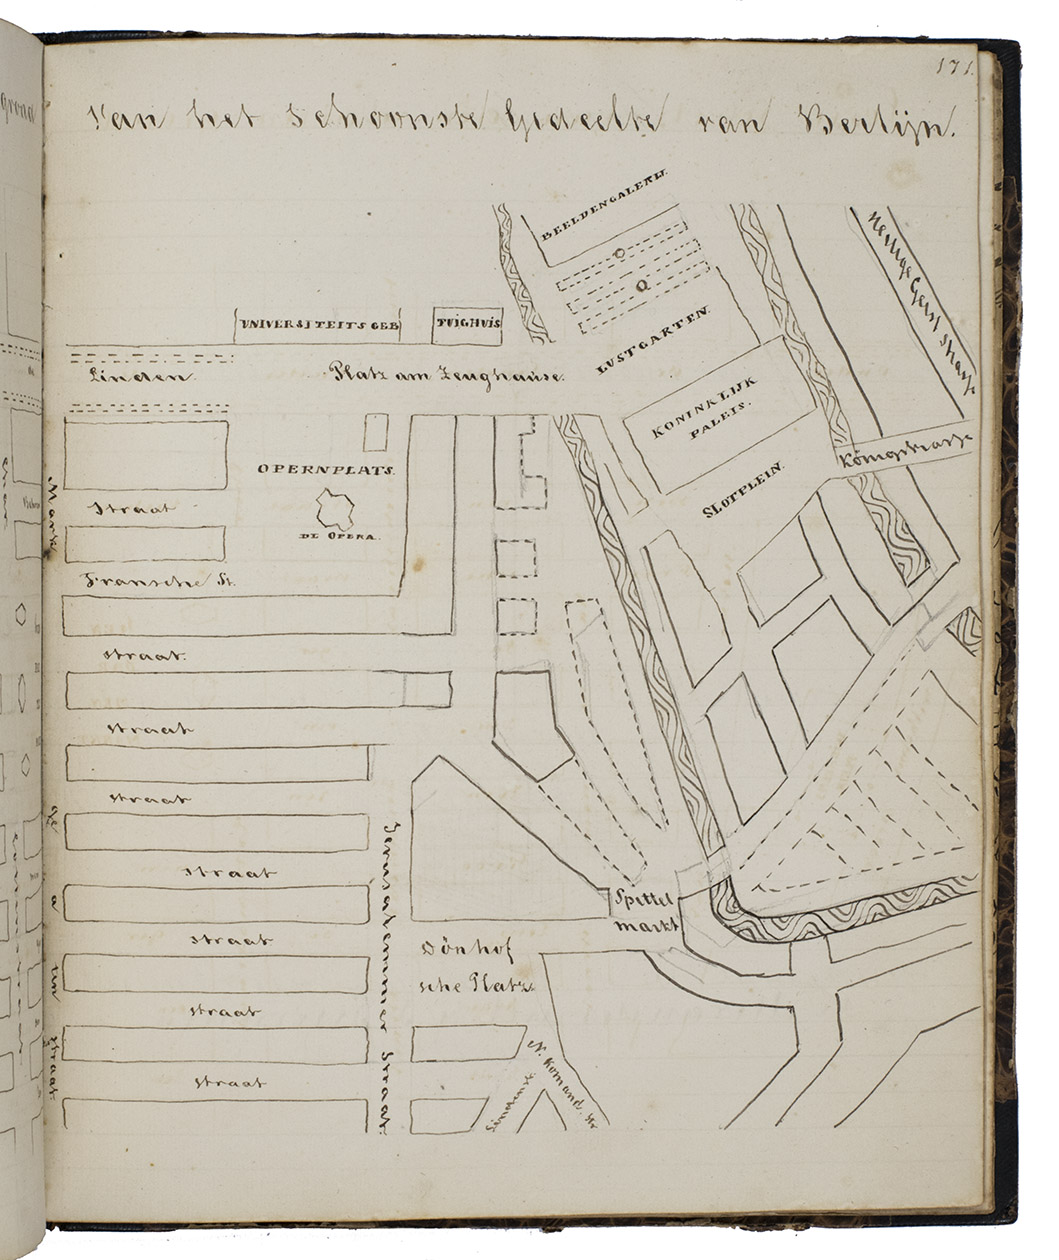 171.
Van het Schoonste Gedeelte van Berlijn.
Grond
BEELDENGALERIJ.
Heilige Geest Straße
UNIVERSITEITS GEB
TUIGHUIS
LUSTGARTEN.
Linden.
Platz am Zeughause.
KONINKLIJK
PALEIS.
Königstrasse
OPERNPLATS.
SLOTPLEIN.
Straat
DE OPERA.
Fransche St.
straat.
straat
straat
Jerusalemmer Straat
straat
Spittel
markt
straat
Dönhof
sche Platz.
straat
N. Komand. Str
straat